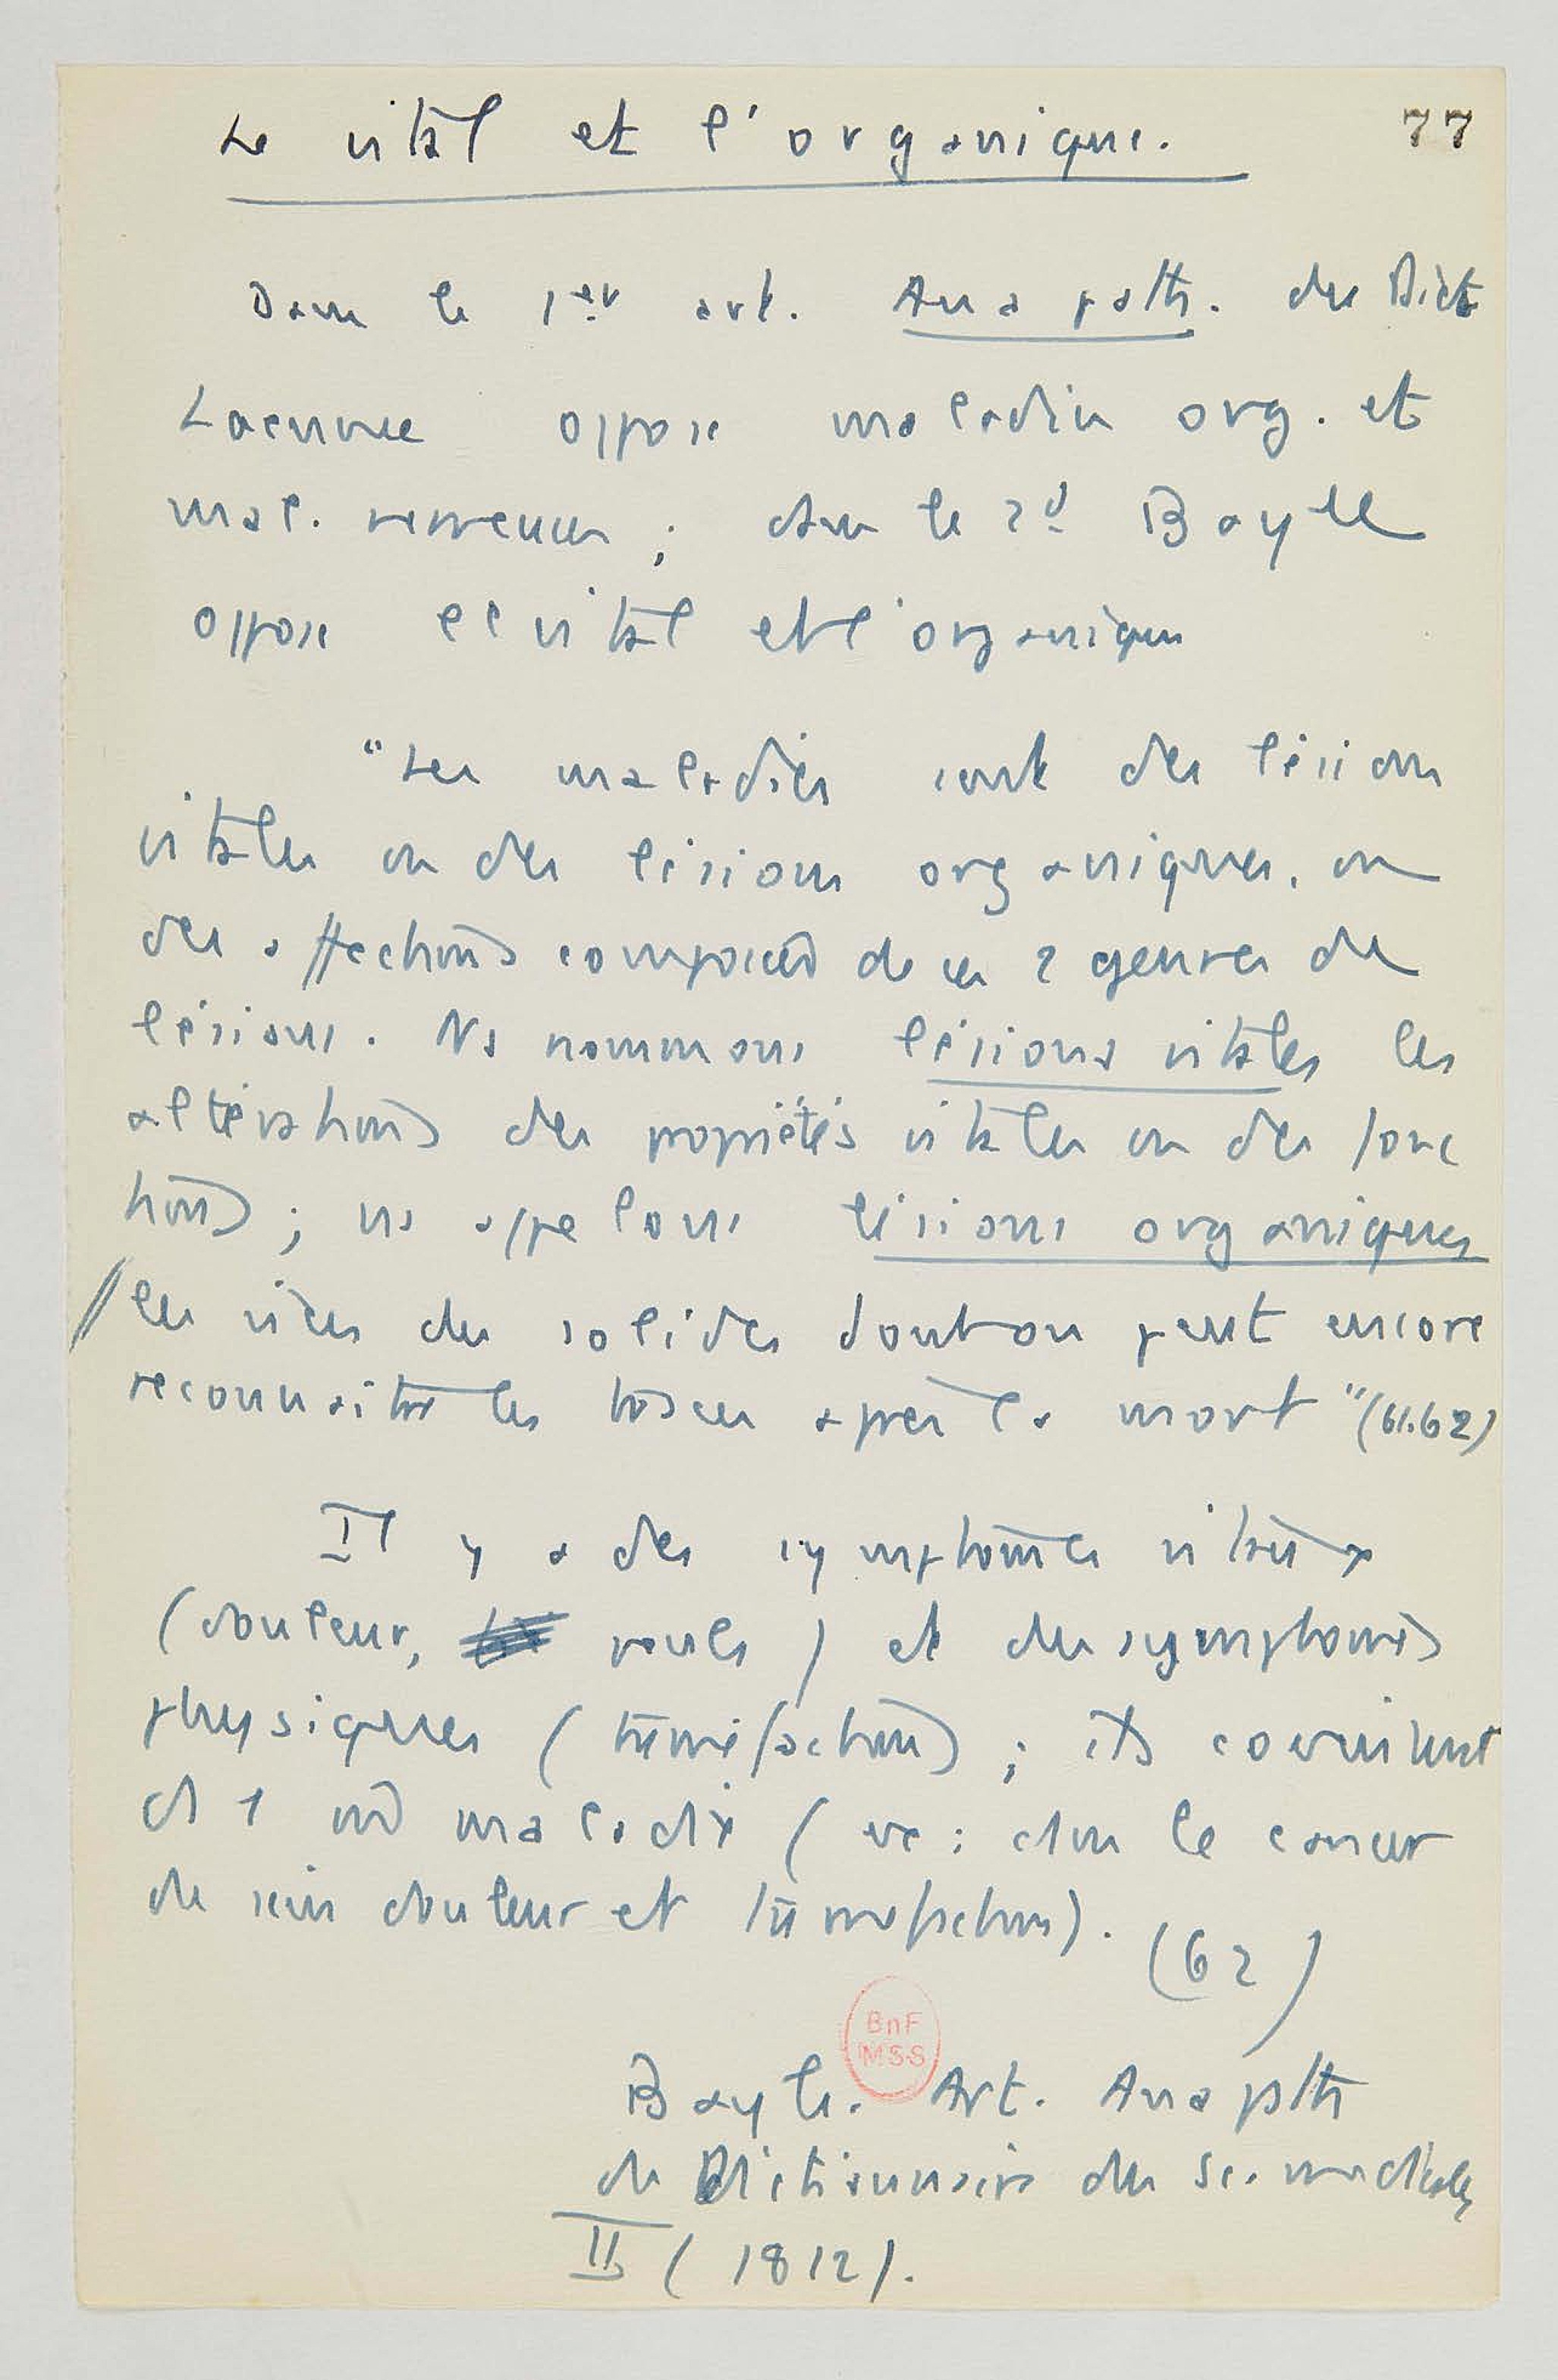 Le vital et l'organique.
77
Dans le 1er art. Ana path. du Dict
Laennec oppose maladies org. et
mal. nerveuses ; dans le 2d Bayle
oppose le vital et l'organique
"Les maladies sont des lésions
vitales ou des lésions organiques, ou
des affections composées de ces 2 genres de
lésions. Ns nommons lésions vitales les
altérations des propriétés vitales ou des fonc
tions ; ns appelons lésions organiques
les vices des solides dont on peut encore
reconnaitre les traces après la mort" (61.62)
Il y a des symptomes vitaux
(douleur, pouls) et des symptomes
physiques (tuméfaction) ; ils coexistent
ds 1 m maladie (ex : dans le cancer
du sein douleur et tuméfaction).
(62)
BnF
MSS
Bayle. Art. Ana path
du Dictionnaire des Sc. medicales
II (1812).